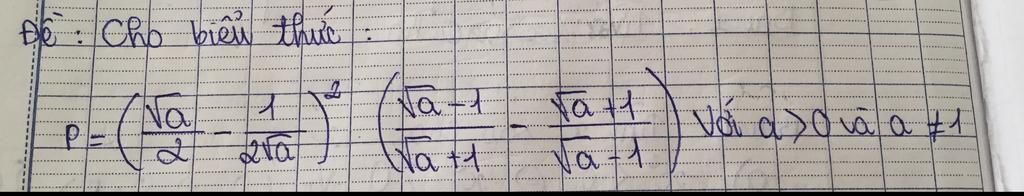 Đề: Cho biểu thức:
P = (√a/2 - 1/2√a)² (√a-1/√a+1 - √a+1/√a-1) Với a>0 và a≠1